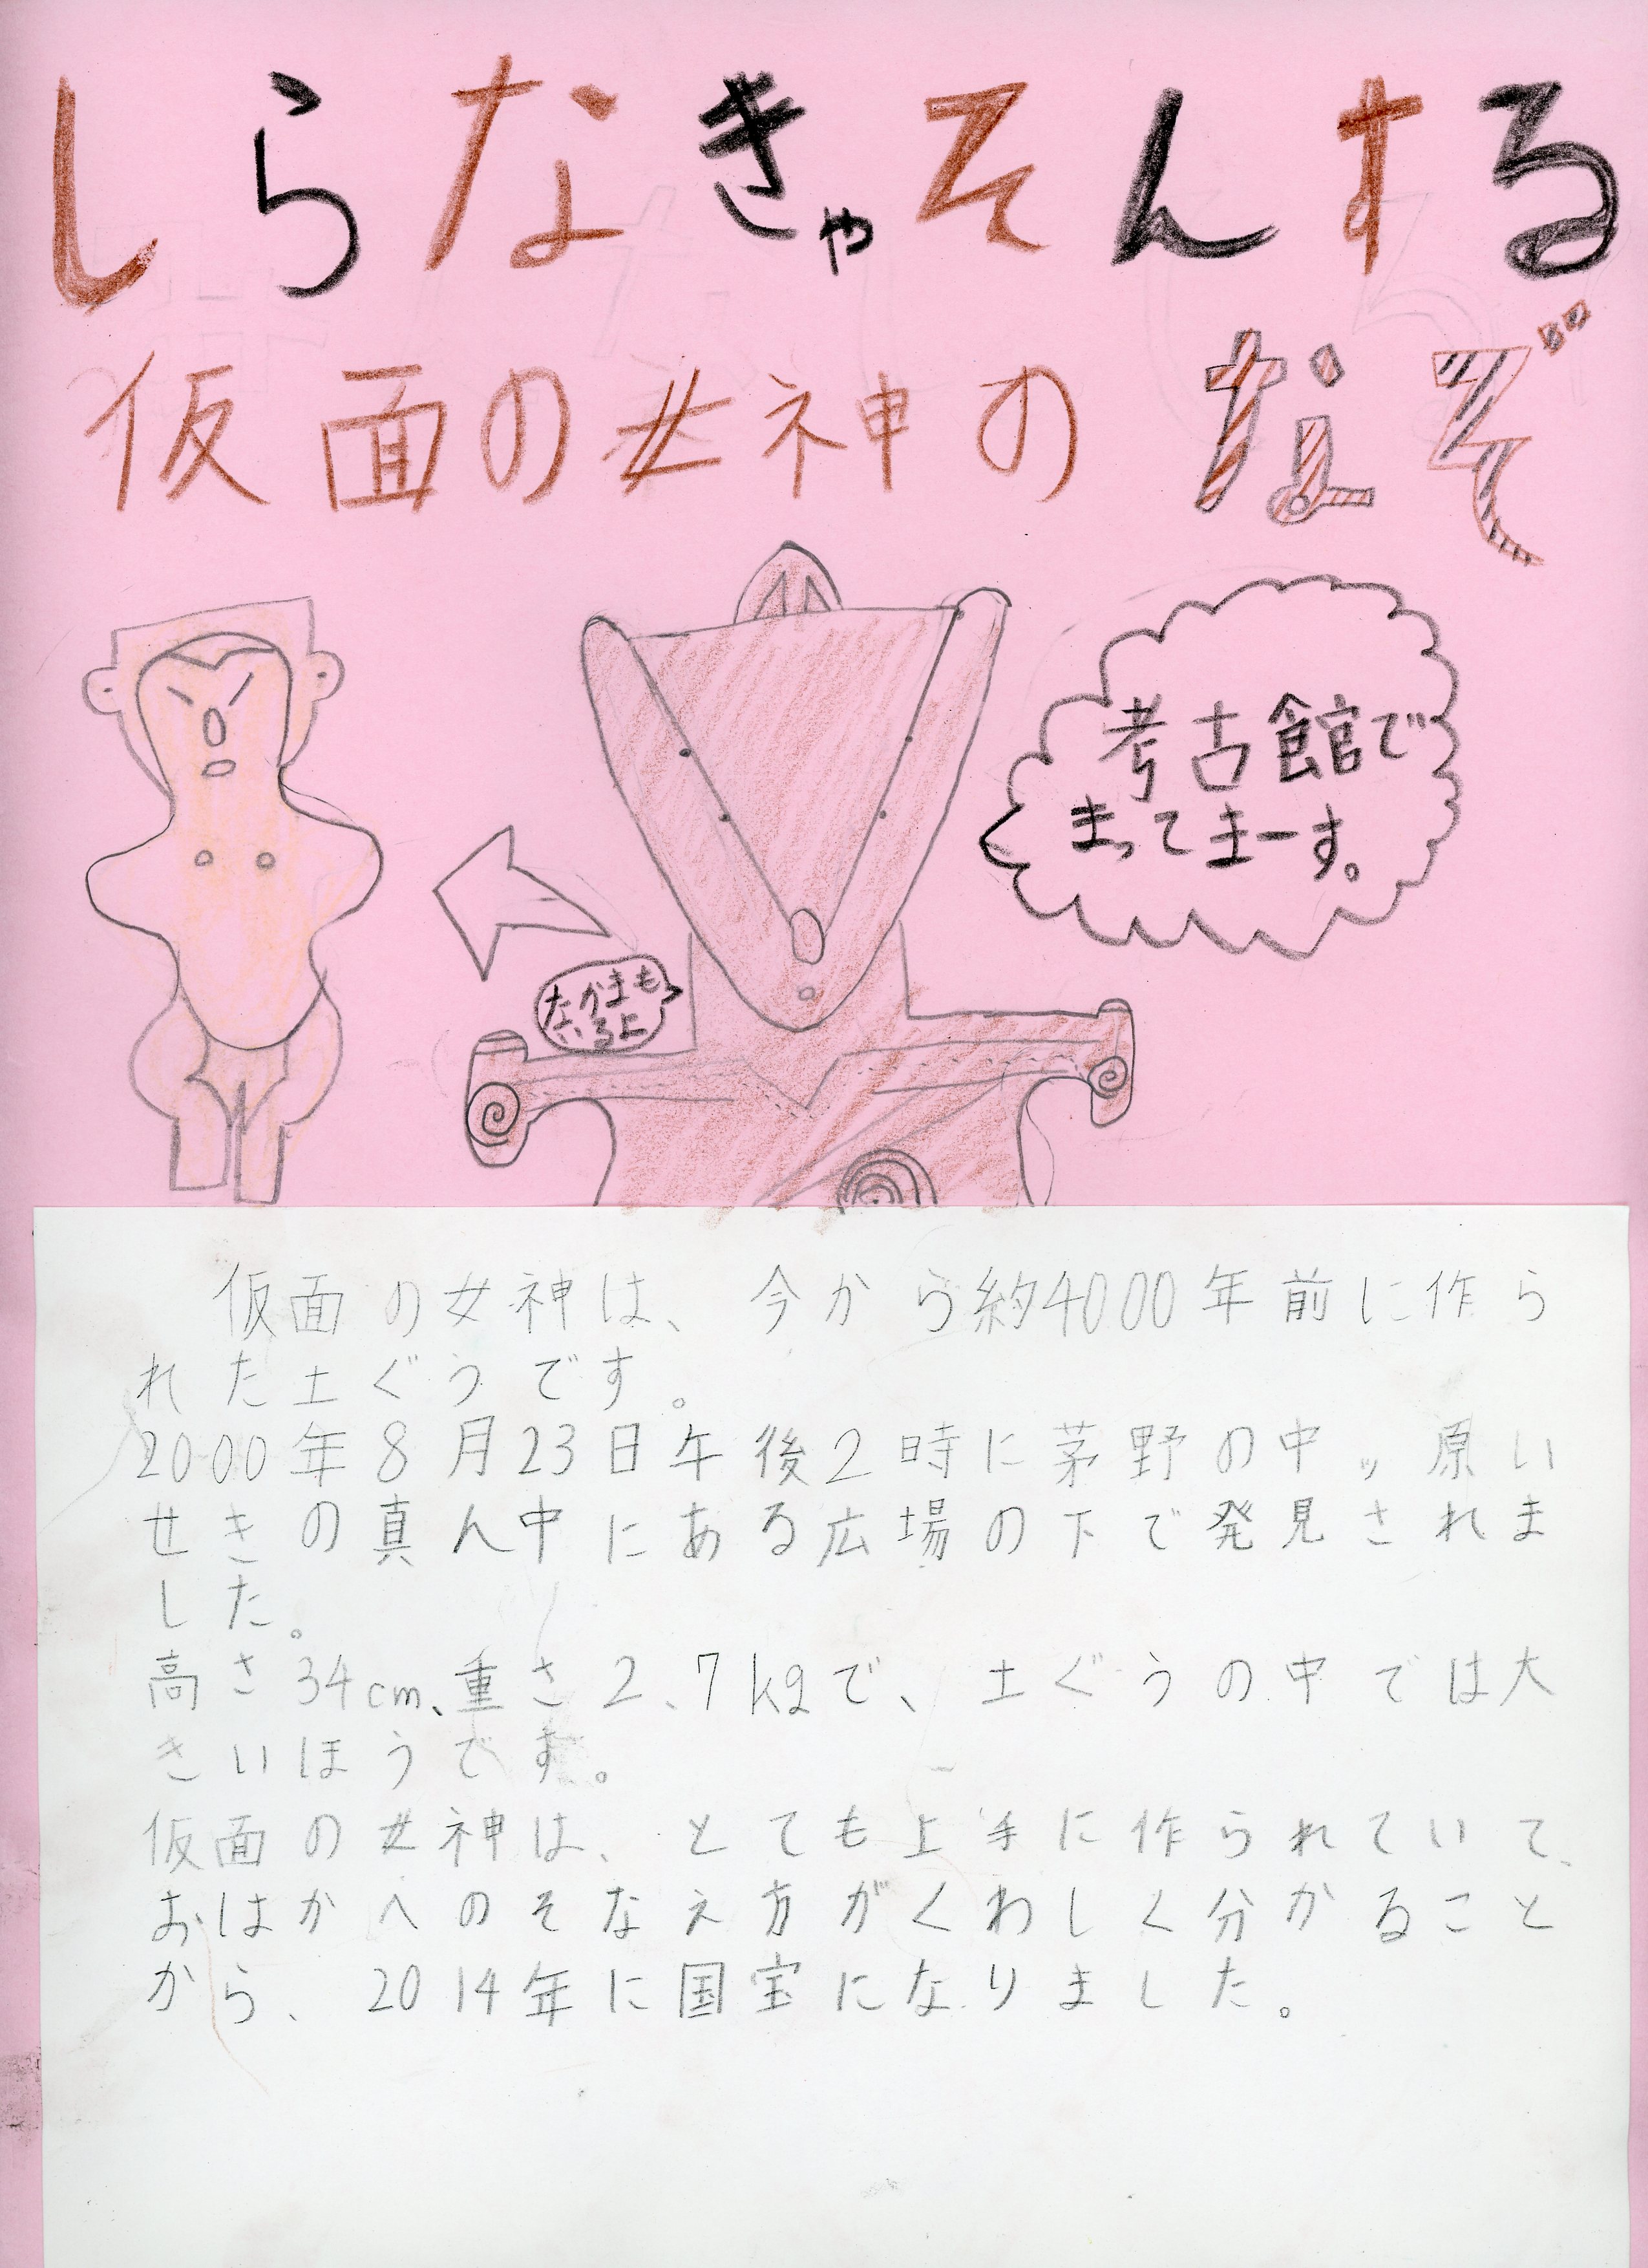 しらなきゃそんする
仮面の女神のなぞ
考古館で
まってまーす。
なかまも
いるよ
仮面の女神は、今から約4000年前に作ら
れた土ぐうです。
2000年8月23日午後2時に茅野の中ッ原い
せきの真ん中にある広場の下で発見されま
した。
高さ34cm、重さ2.7kgで、土ぐうの中では大
きいほうです。
仮面の女神は、とても上手に作られていて、
おはかへのそなえ方がくわしく分かること
から、2014年に国宝になりました。